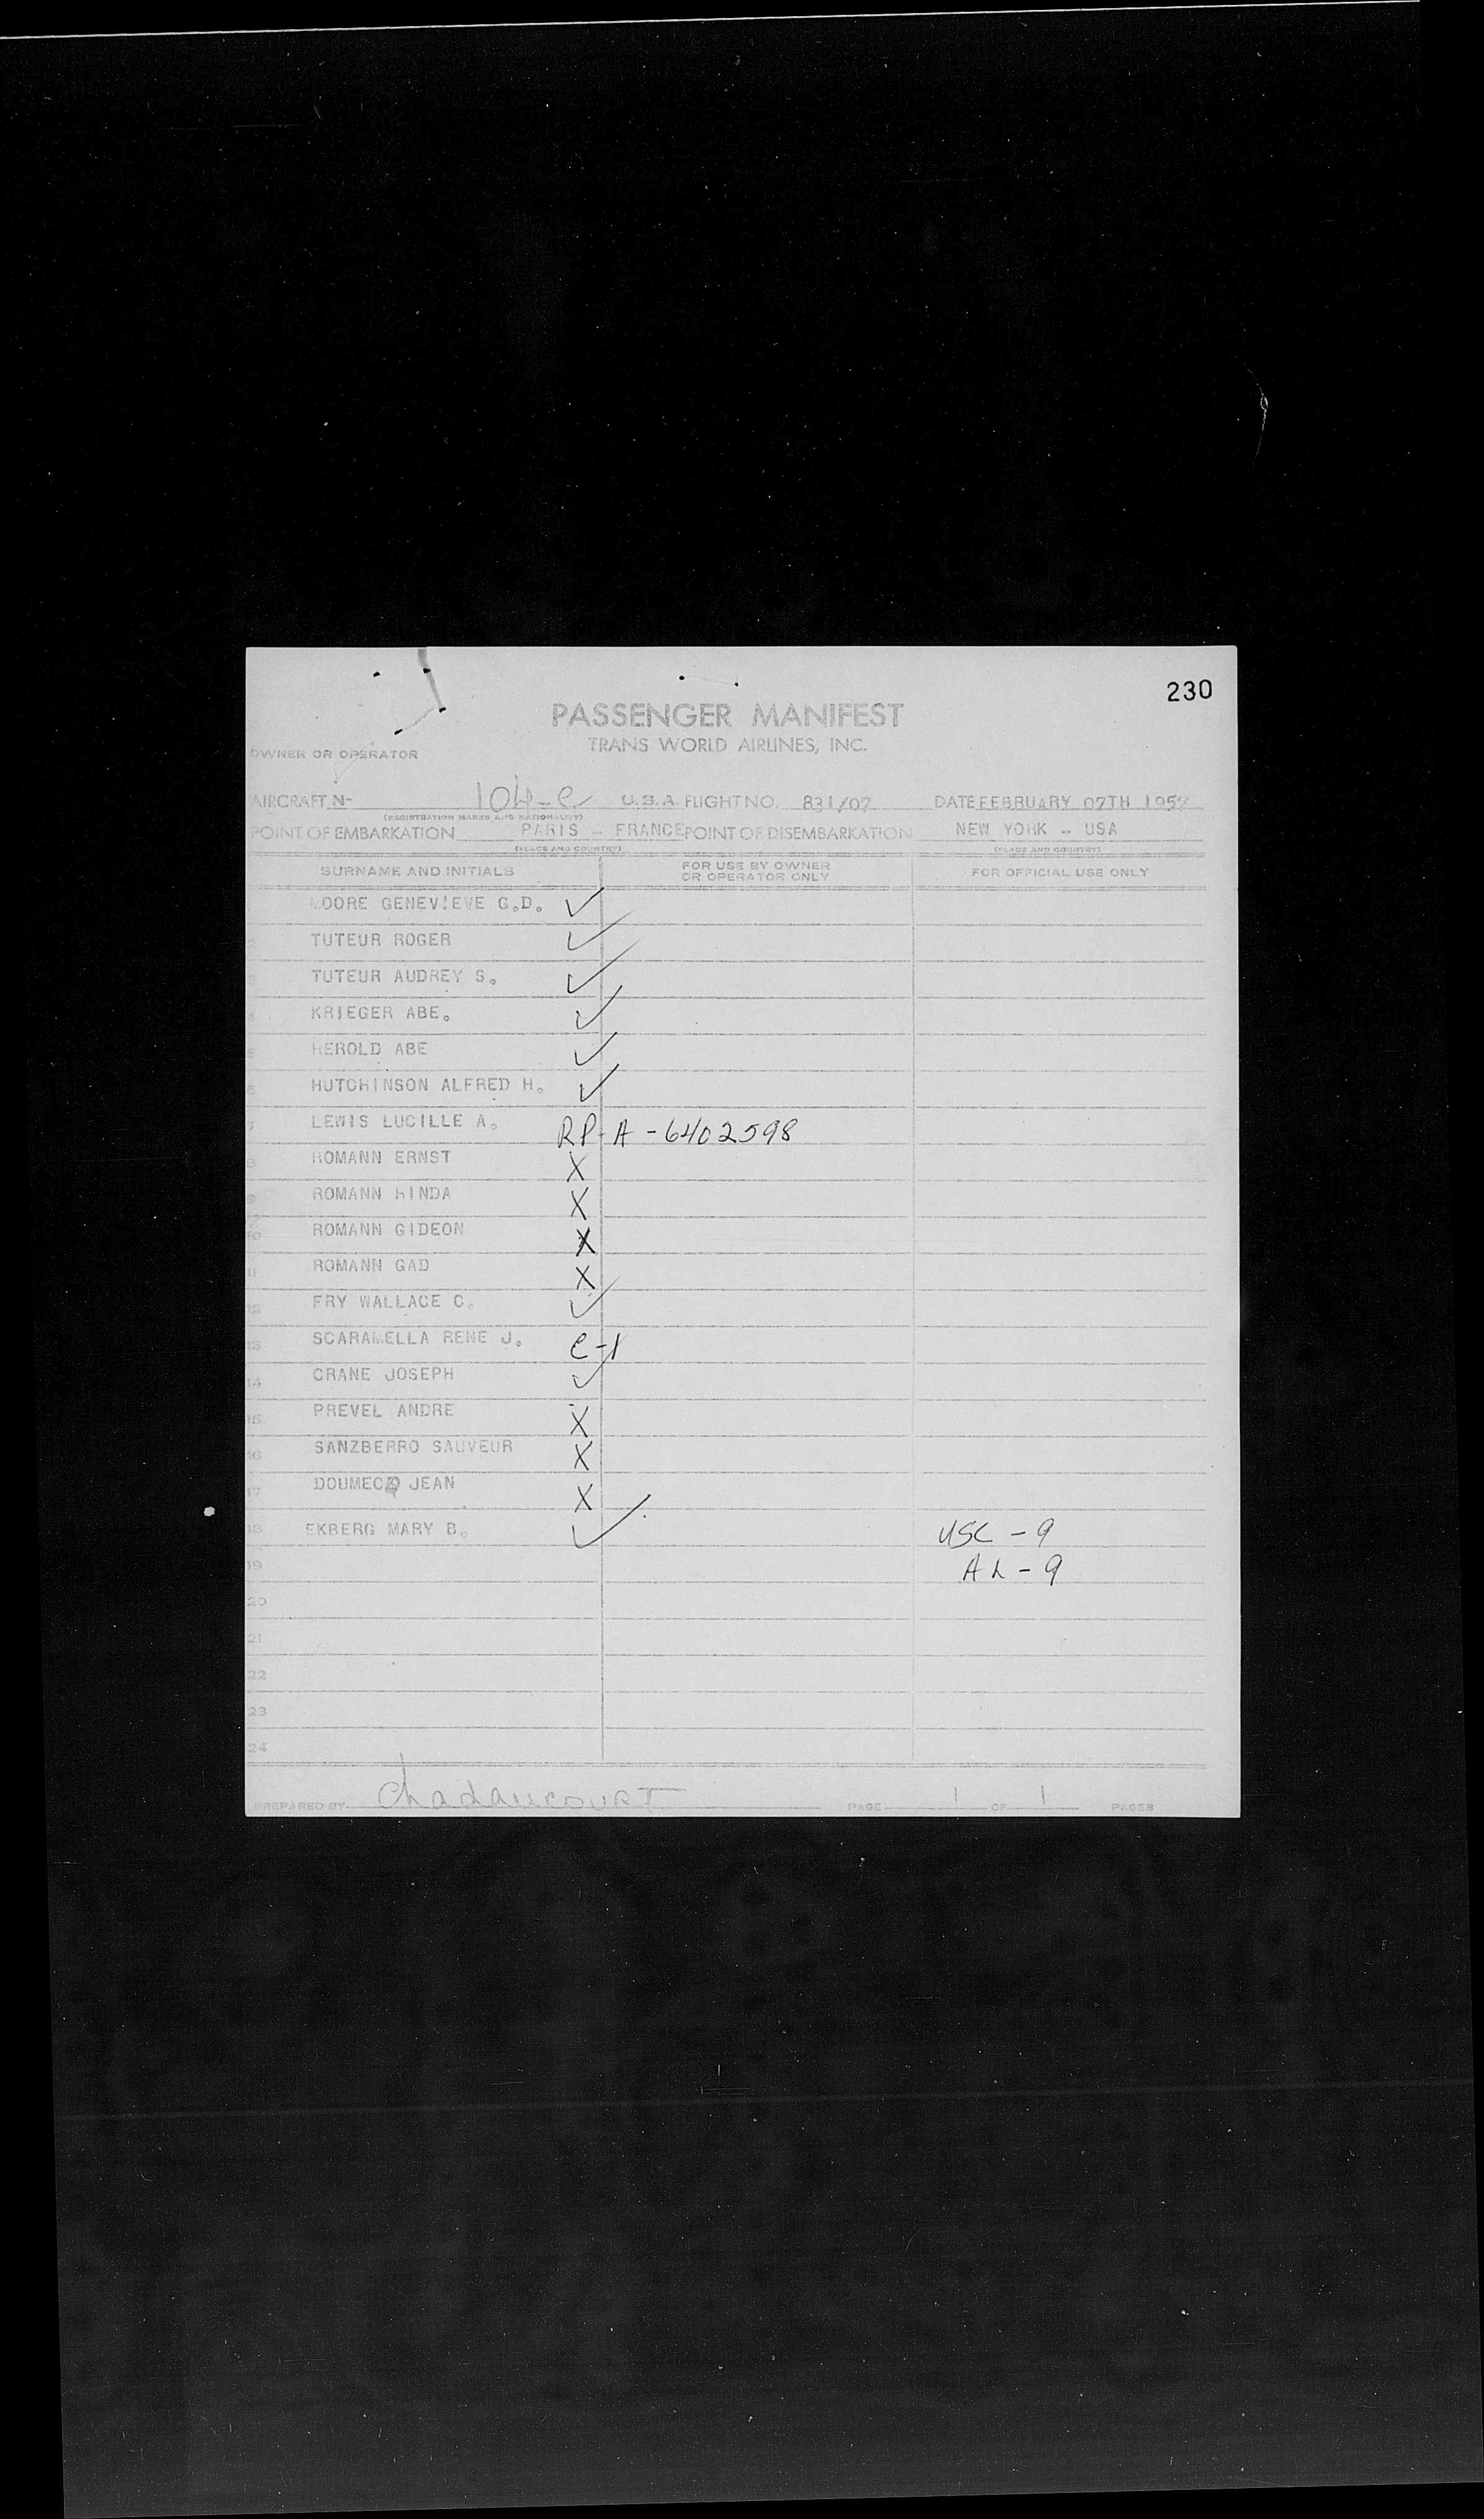 230
PASSENGER MANIFEST
TRANS WORLD AIRLINES, INC.
OWNER OR OPERATOR
AIRCRAFT N- 104-C U.S.A. FLIGHT NO. 831/07 DATE FEBRUARY 07TH 1957
(REGISTRATION MARKS AND NATIONALITY)
POINT OF EMBARKATION PARIS - FRANCE POINT OF DISEMBARKATION NEW YORK - USA
(PLACE AND COUNTRY) (PLACE AND COUNTRY)
SURNAME AND INITIALS FOR USE BY OWNER OR OPERATOR ONLY FOR OFFICIAL USE ONLY
MOORE GENEVIEVE G.D. ✓
TUTEUR ROGER ✓
TUTEUR AUDREY S. ✓
KRIEGER ABE. ✓
5 HEROLD ABE ✓
6 HUTCHINSON ALFRED H. ✓
7 LEWIS LUCILLE A. RP-A-6402598
8 ROMANN ERNST X
9 ROMANN HINDA X
10 ROMANN GIDEON X
11 ROMANN GAD X
12 FRY WALLACE C. ✓
13 SCARAMELLA RENE J. C-1
14 CRANE JOSEPH ✓
15 PREVEL ANDRE X
16 SANZBERRO SAUVEUR X
17 DOUMECQ JEAN X
18 EKBERG MARY B. ✓ USC - 9
19 AL - 9
20
21
22
23
24
PREPARED BY Chadaucourt PAGE 1 OF 1 PAGES